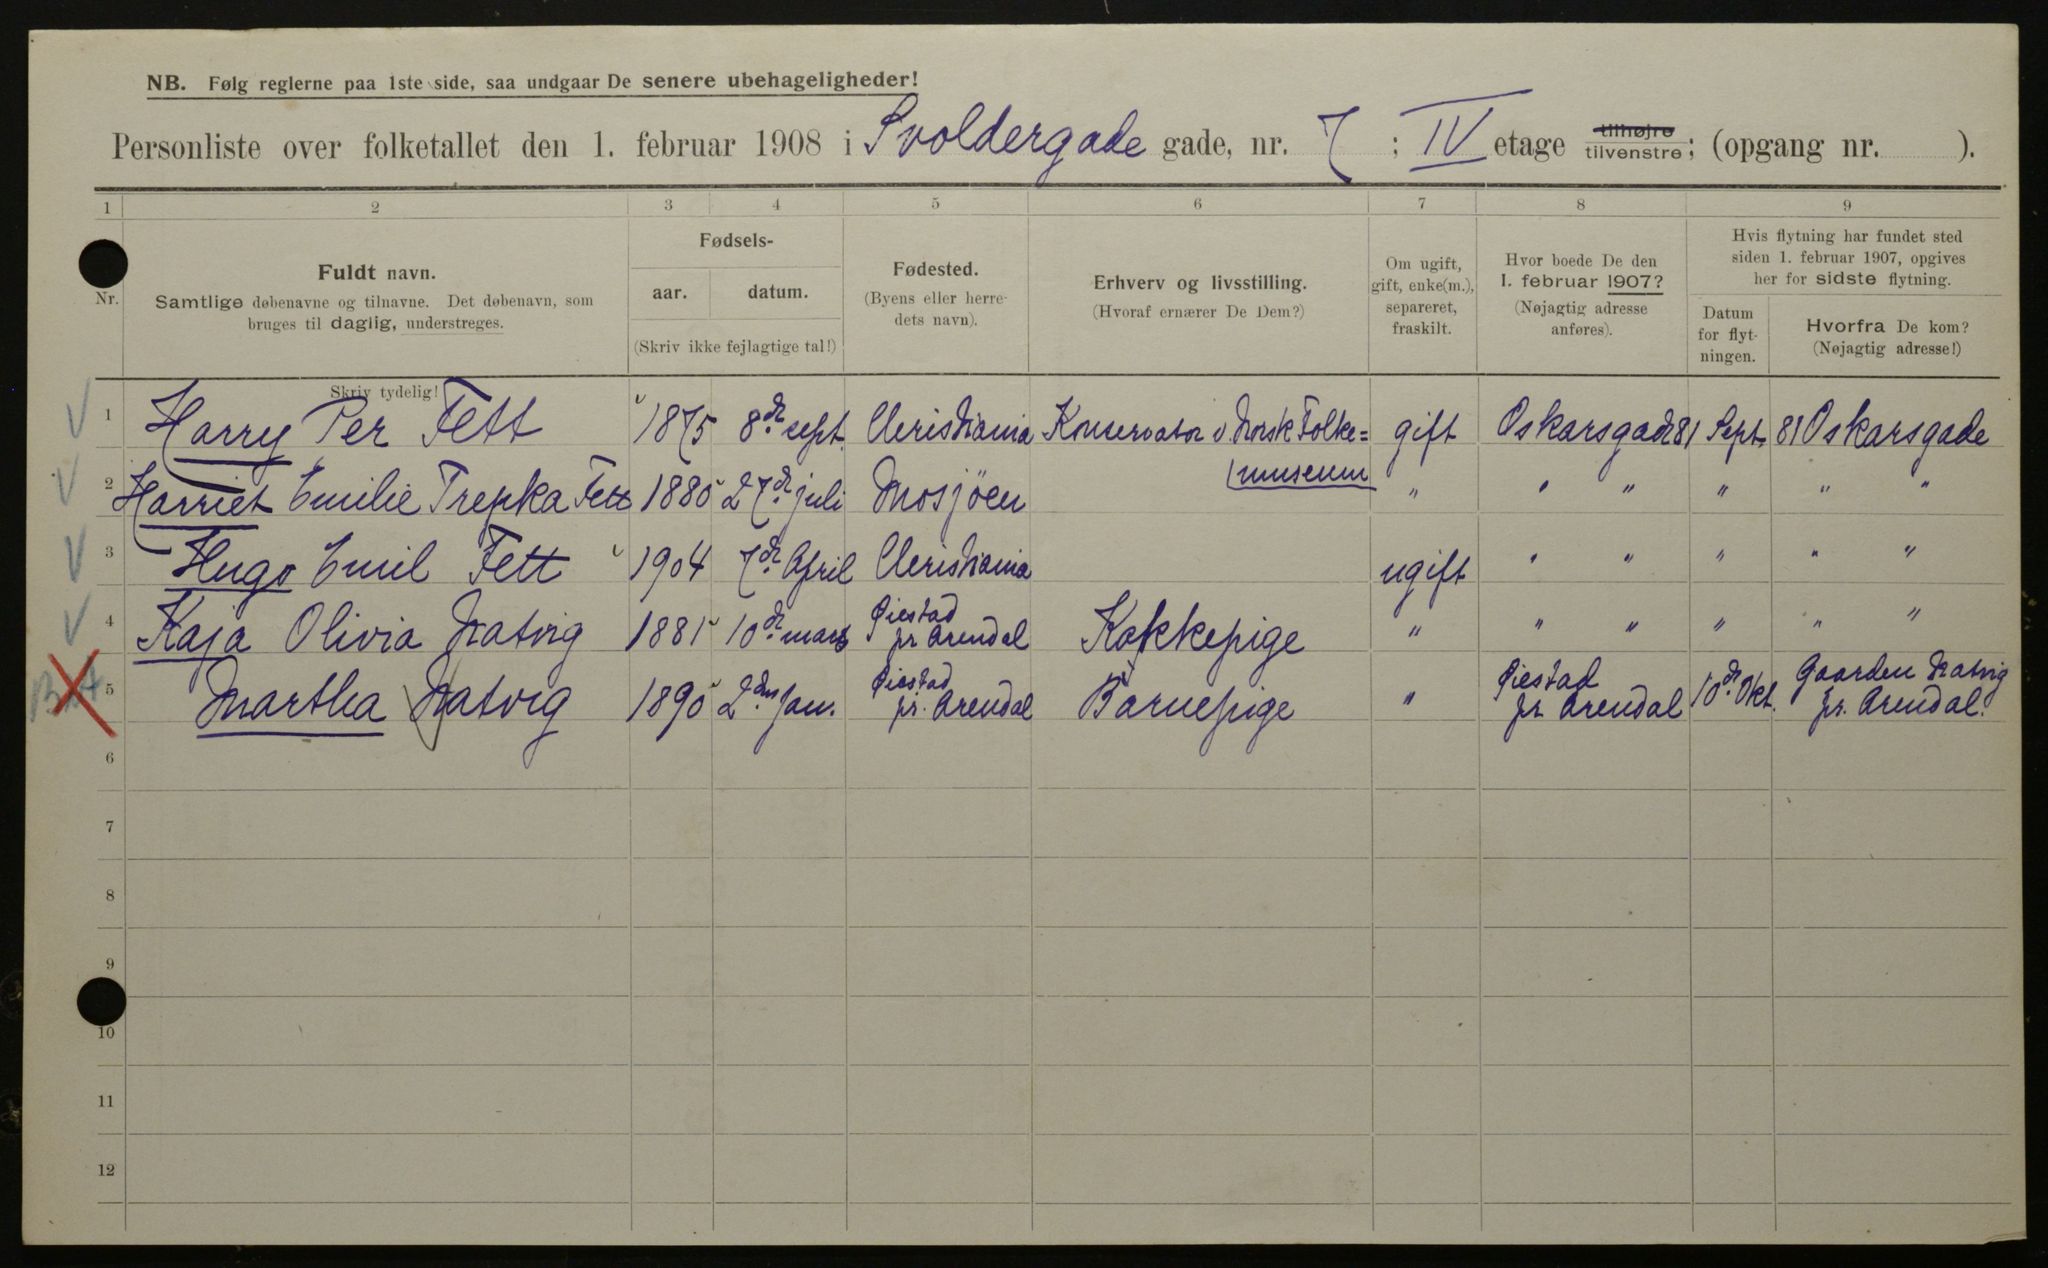 NB. Følg reglerne paa 1ste side, saa undgaar De senere ubehageligheder!
Personliste over folketallet den 1. februar 1908 i Svoldergade gade, nr. 7 ; IV etage tilhøjre tilvenstre; (opgang nr. ).
1 2 3 4 5 6 7 8 9
Nr.
Fuldt navn.
Samtlige døbenavne og tilnavne. Det døbenavn, som
bruges til daglig, understreges.
Skriv tydelig!
Fødsels-
aar. datum.
(Skriv ikke fejlagtige tal!)
Fødested.
(Byens eller herre-
dets navn).
Erhverv og livsstilling.
(Hvoraf ernærer De Dem?)
Om ugift,
gift, enke(m.),
separeret,
fraskilt.
Hvor boede De den
1. februar 1907?
(Nøjagtig adresse
anføres).
Hvis flytning har fundet sted
siden 1. februar 1907, opgives
her for sidste flytning.
Datum
for flyt-
ningen.
Hvorfra De kom?
(Nøjagtig adresse!)
1 Harry Per Fett 1875 8de sept. Christiania Konservator v. Norsk Folke= gift Oskarsgade 81 Sept. 81 Oskarsgade
museum
2 Harriet Emilie Trepka Fett 1880 27de juli Mosjöen " " " " " "
3 Hugo Emil Fett 1904 7de April Christiania ugift " " " " "
4 Kaja Olivia Natvig 1881 10de mars Øiestad pr Arendal Kokkepige " " " " " "
5 Martha Natvig 1890 2den Jan. Øiestad pr. Arendal Barnepige " Øiestad pr Arendal 10de Okt. Gaarden Natvig pr. Arendal.
6
7
8
9
10
11
12